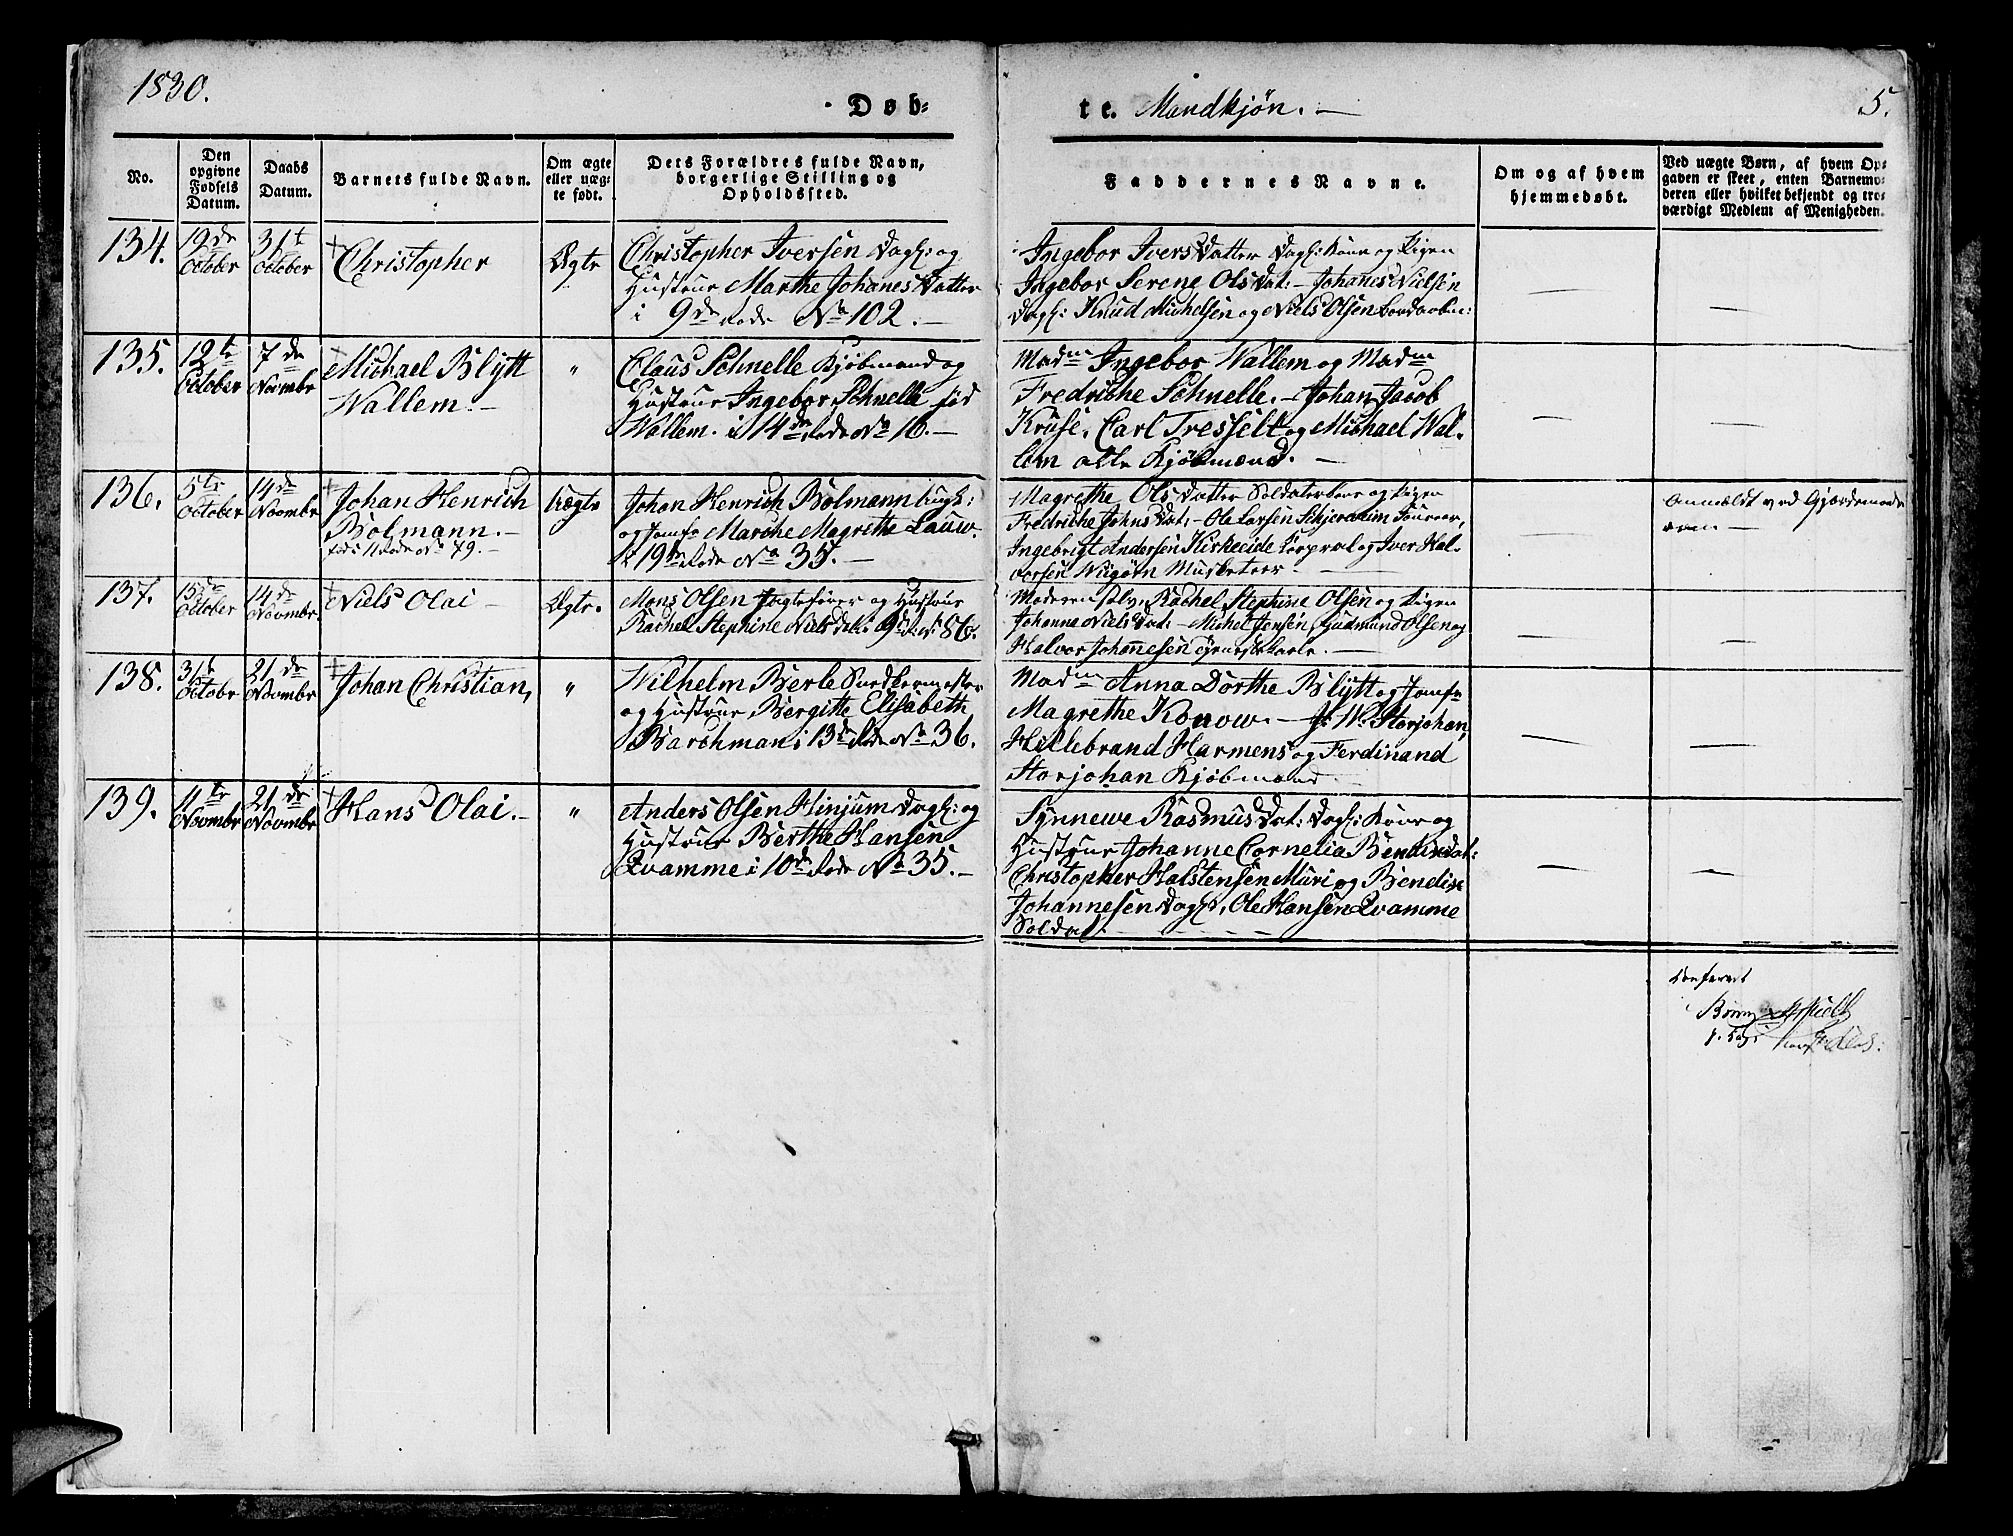 1830.
Døb=
te. Mandkjøn. —
5.
No.
Den opgivne Fødsels Datum.
Daabs Datum.
Barnets fulde Navn.
Om ægte eller uægte født.
Dets Forældres fulde Navn, borgerlige Stilling og Opholdssted.
Faddernes Navne.
Om og af hvem hjemmedøbt.
Ved uægte Børn, af hvem Opgaven er skeet, enten Barnemoderen eller hvilket bekjendt og troværdigt Medlem af Menigheden.
134.
19de October
31t October
Christopher
Ægte
Christopher Iversen Dagk: og
Hustrue Marthe Johanes Datter
i 9de Rode No 102. —
Ingebor Ivers Datter Dagk: Kone og Pigen
Ingebor Serene Ols Dat: – Johanes Nielsen
Dagk: Knud Michelsen og Niels Olsen
135.
12te October
7de Novmbr
Michael Blÿtt
Wallem. –
"
Claus Schnelle Kjøbmand og
Hustrue Ingebor Schnelle fød
Wallem. i 14de Rode No 16. —
Madm Ingebor Wallem og Madm
Fredrikhe Schnelle. – Johan Jacob
Kruse, Carl Tresselt og Michael Wal-
lem alle Kjøbmænd. —
136.
5te October
14de Novmbr
Johan Henrich
Bolmann. —
fød i 11 Rode No 49. —
Uægte
Johan Henrich Bolmann
og Jomf. Marthe Magrethe Lauw.
i 19de Rode No 35. —
Magrethe Ols Datter Soldaterkone og Pigen
Fredrikhe Johns Dat: – Ole Larsen
Ingebrigt Andersen Kirkeeide Corporal og Iver Hal-
vorsen Musketeer —
Anmeldt ved Gjordemode
ren —
137.
15de October
14de Novmbr
Niels Olai —
Ægte.
Mons Olsen og Hustrue
Rachel Stephine Niels Dat: i 9de R. No 86.
Moderen selv, Rachel Stephine Olsen og Pigen
Johanne Niels Dat: – Michel Jensen, Gudmund Olsen og
Halvor Johannesen —
138.
31t Octobr
21de Novmbr
Johan Christian,
"
Wilhelm Berle Sadlermester
og Hustrue Bergitte Elisabeth
Barchman i 13de Rode No 36.
Madm Anna Dorthe Blÿtt og Jomfr
Magrethe Konow. – J: W: Storjohan,
Hillebrand Harmens og Ferdinand
Storjohan Kjøbmænd
139.
4te Novmbr
21de Novmbr
Hans Olai. –
"
Anders Olsen Hinjum Dagk: og
Hustrue Berthe Hansen
Qvamme i 10de Rode No 35. –
Synnewe Rasmus Dat: Dagk: Kone og
Hustrue Johanne Cornelia Bendix Dat:
Christopher Halstensen Muri og Bendix
Johannesen Dagk:, Ole Hansen Qvamme
Soldat.
Confereret